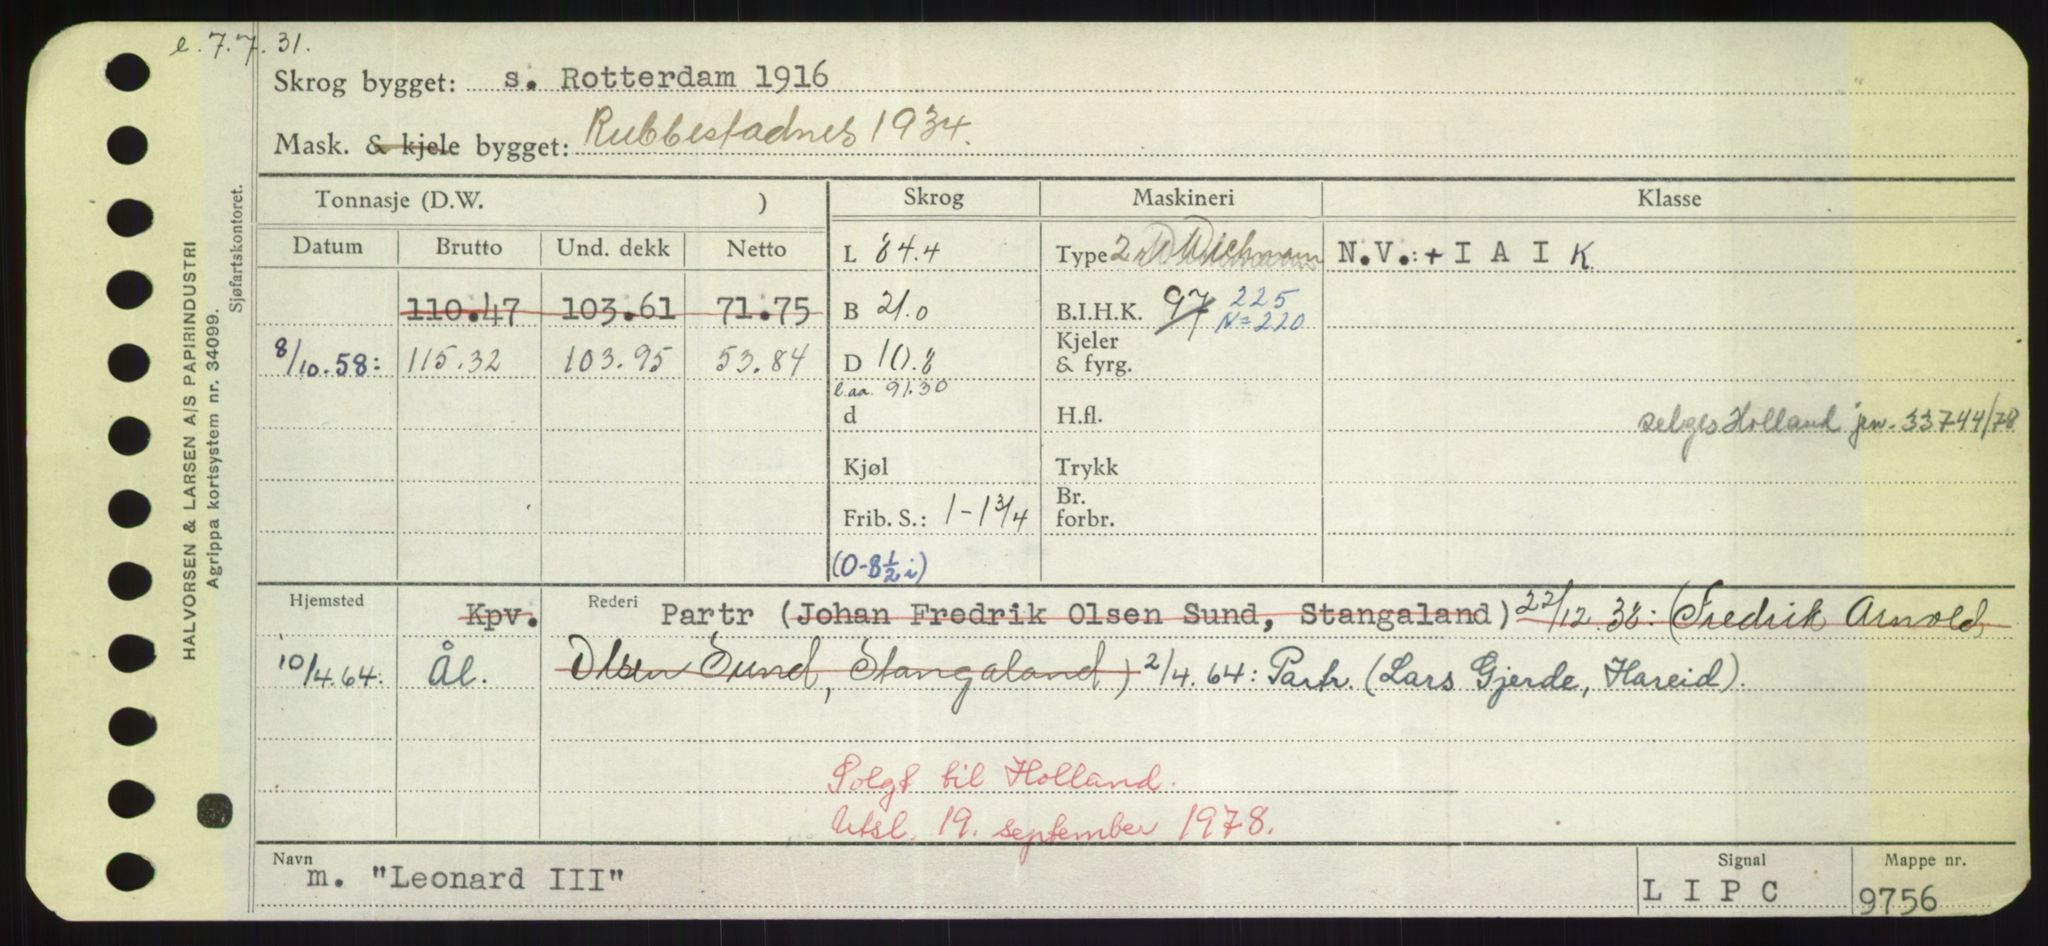 e. 7.7.31.
Skrog bygget: s. Rotterdam 1916
Mask. & kjele bygget: Rubbestadnes 1934.
Tonnasje (D.W. ) Skrog Maskineri Klasse
Datum Brutto Und. dekk Netto L 84.4 Type 2 Wichmann N.V.: + I A I K
110.47 103.61 71.75 B 21.0 B.I.H.K. 97 225
N=220
8/10.58: 115.32 103.95 53.84 D 10.8 Kjeler
& fyrg.
l.aa. 91.30
d H.fl. selges Holland jnr. 33744/78
Kjøl Trykk
Frib. S.: 1-1 3/4 Br.
forbr.
(0-8 1/2 i)
Hjemsted Kpv. Rederi Partr (Johan Fredrik Olsen Sund, Stangaland) 22/12.38: (Fredrik Arnold
10/4.64: Ål. Olsen Sund, Stangaland) 2/4.64: Partr. (Lars Gjerde, Hareid).
Solgt til Holland.
Utsl. 19. september 1978.
Navn m. "Leonard III" Signal L I P C Mappe nr. 9756
HALVORSEN & LARSEN A/S PAPIRINDUSTRI
Agrippa kortsystem nr. 34099.
Sjøfartskontoret.